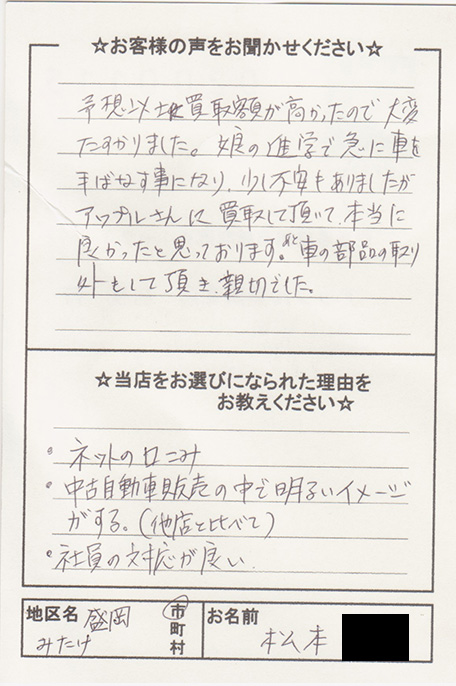 ☆お客様の声をお聞かせください☆
予想以上に買取額が高かったので大変
たすかりました。娘の進学で急に車を
手ばなす事になり、少し不安もありましたが
アップルさんに買取して頂いて、本当に
良かったと思っております。あと車の部品の取り
外しもして頂き、親切でした。
☆当店をお選びになられた理由を
お教えください☆
・ネットの口こみ
・中古自動車販売の中で明るいイメージ
がする。(他店と比べて)
・社員の対応が良い.
地区名 盛岡 市町村 お名前
みたけ 松本